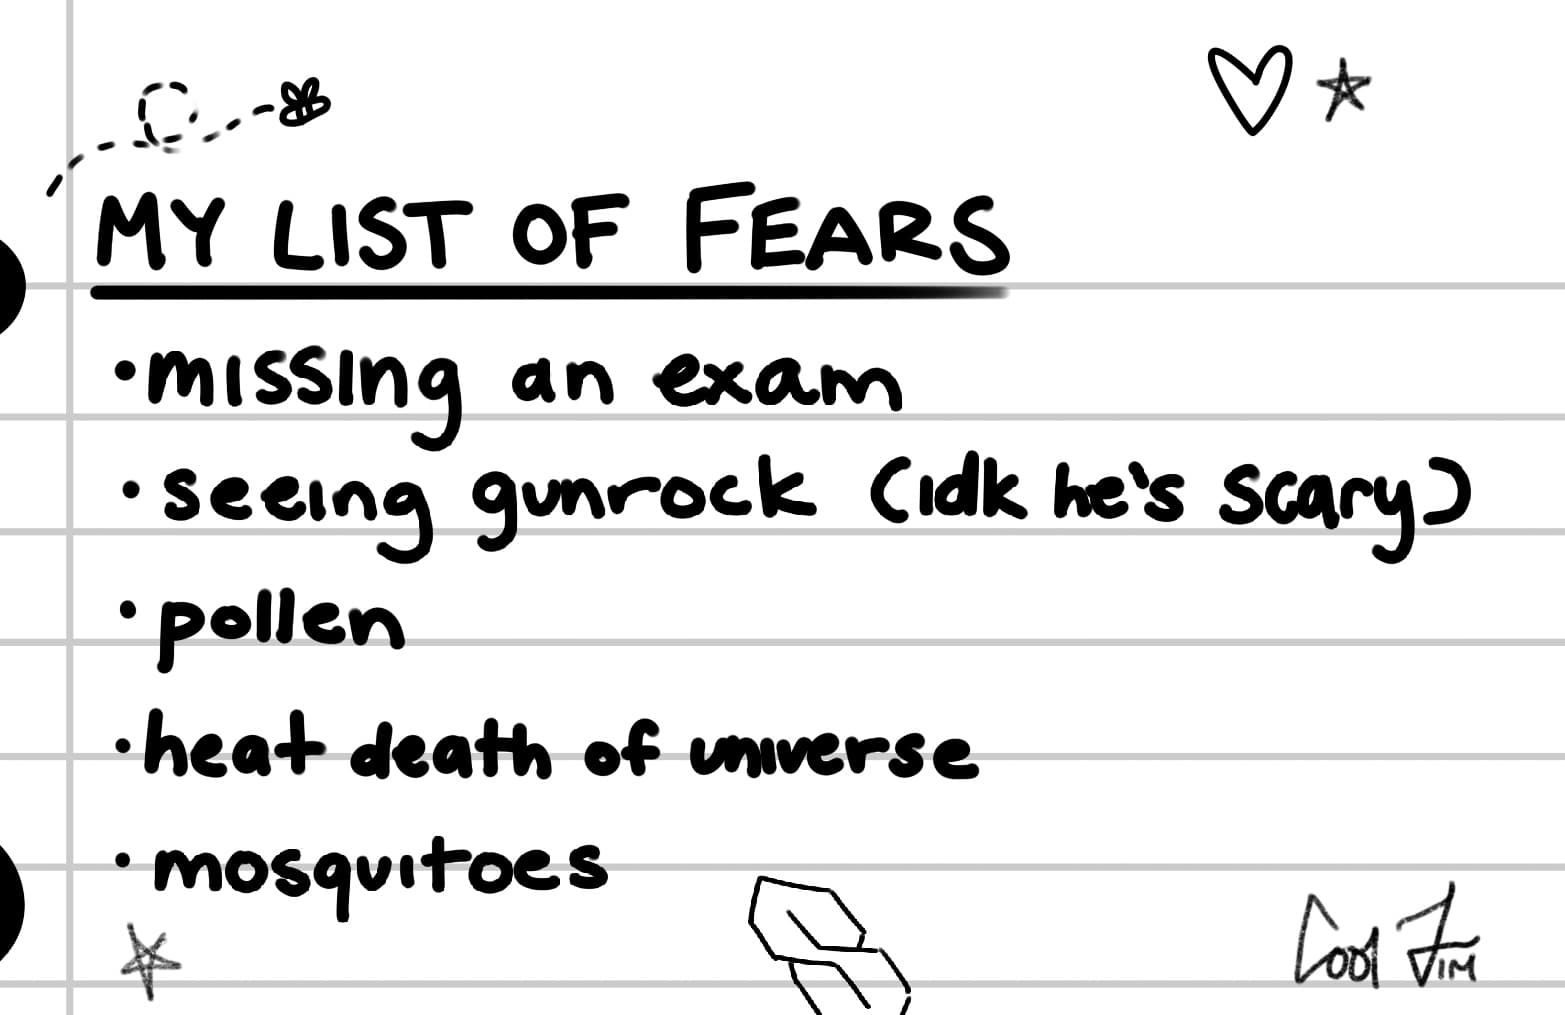 MY LIST OF FEARS
•missing an exam
• seeing gunrock (idk he's scary)
• pollen
•heat death of universe
• mosquitoes
Cool Jim